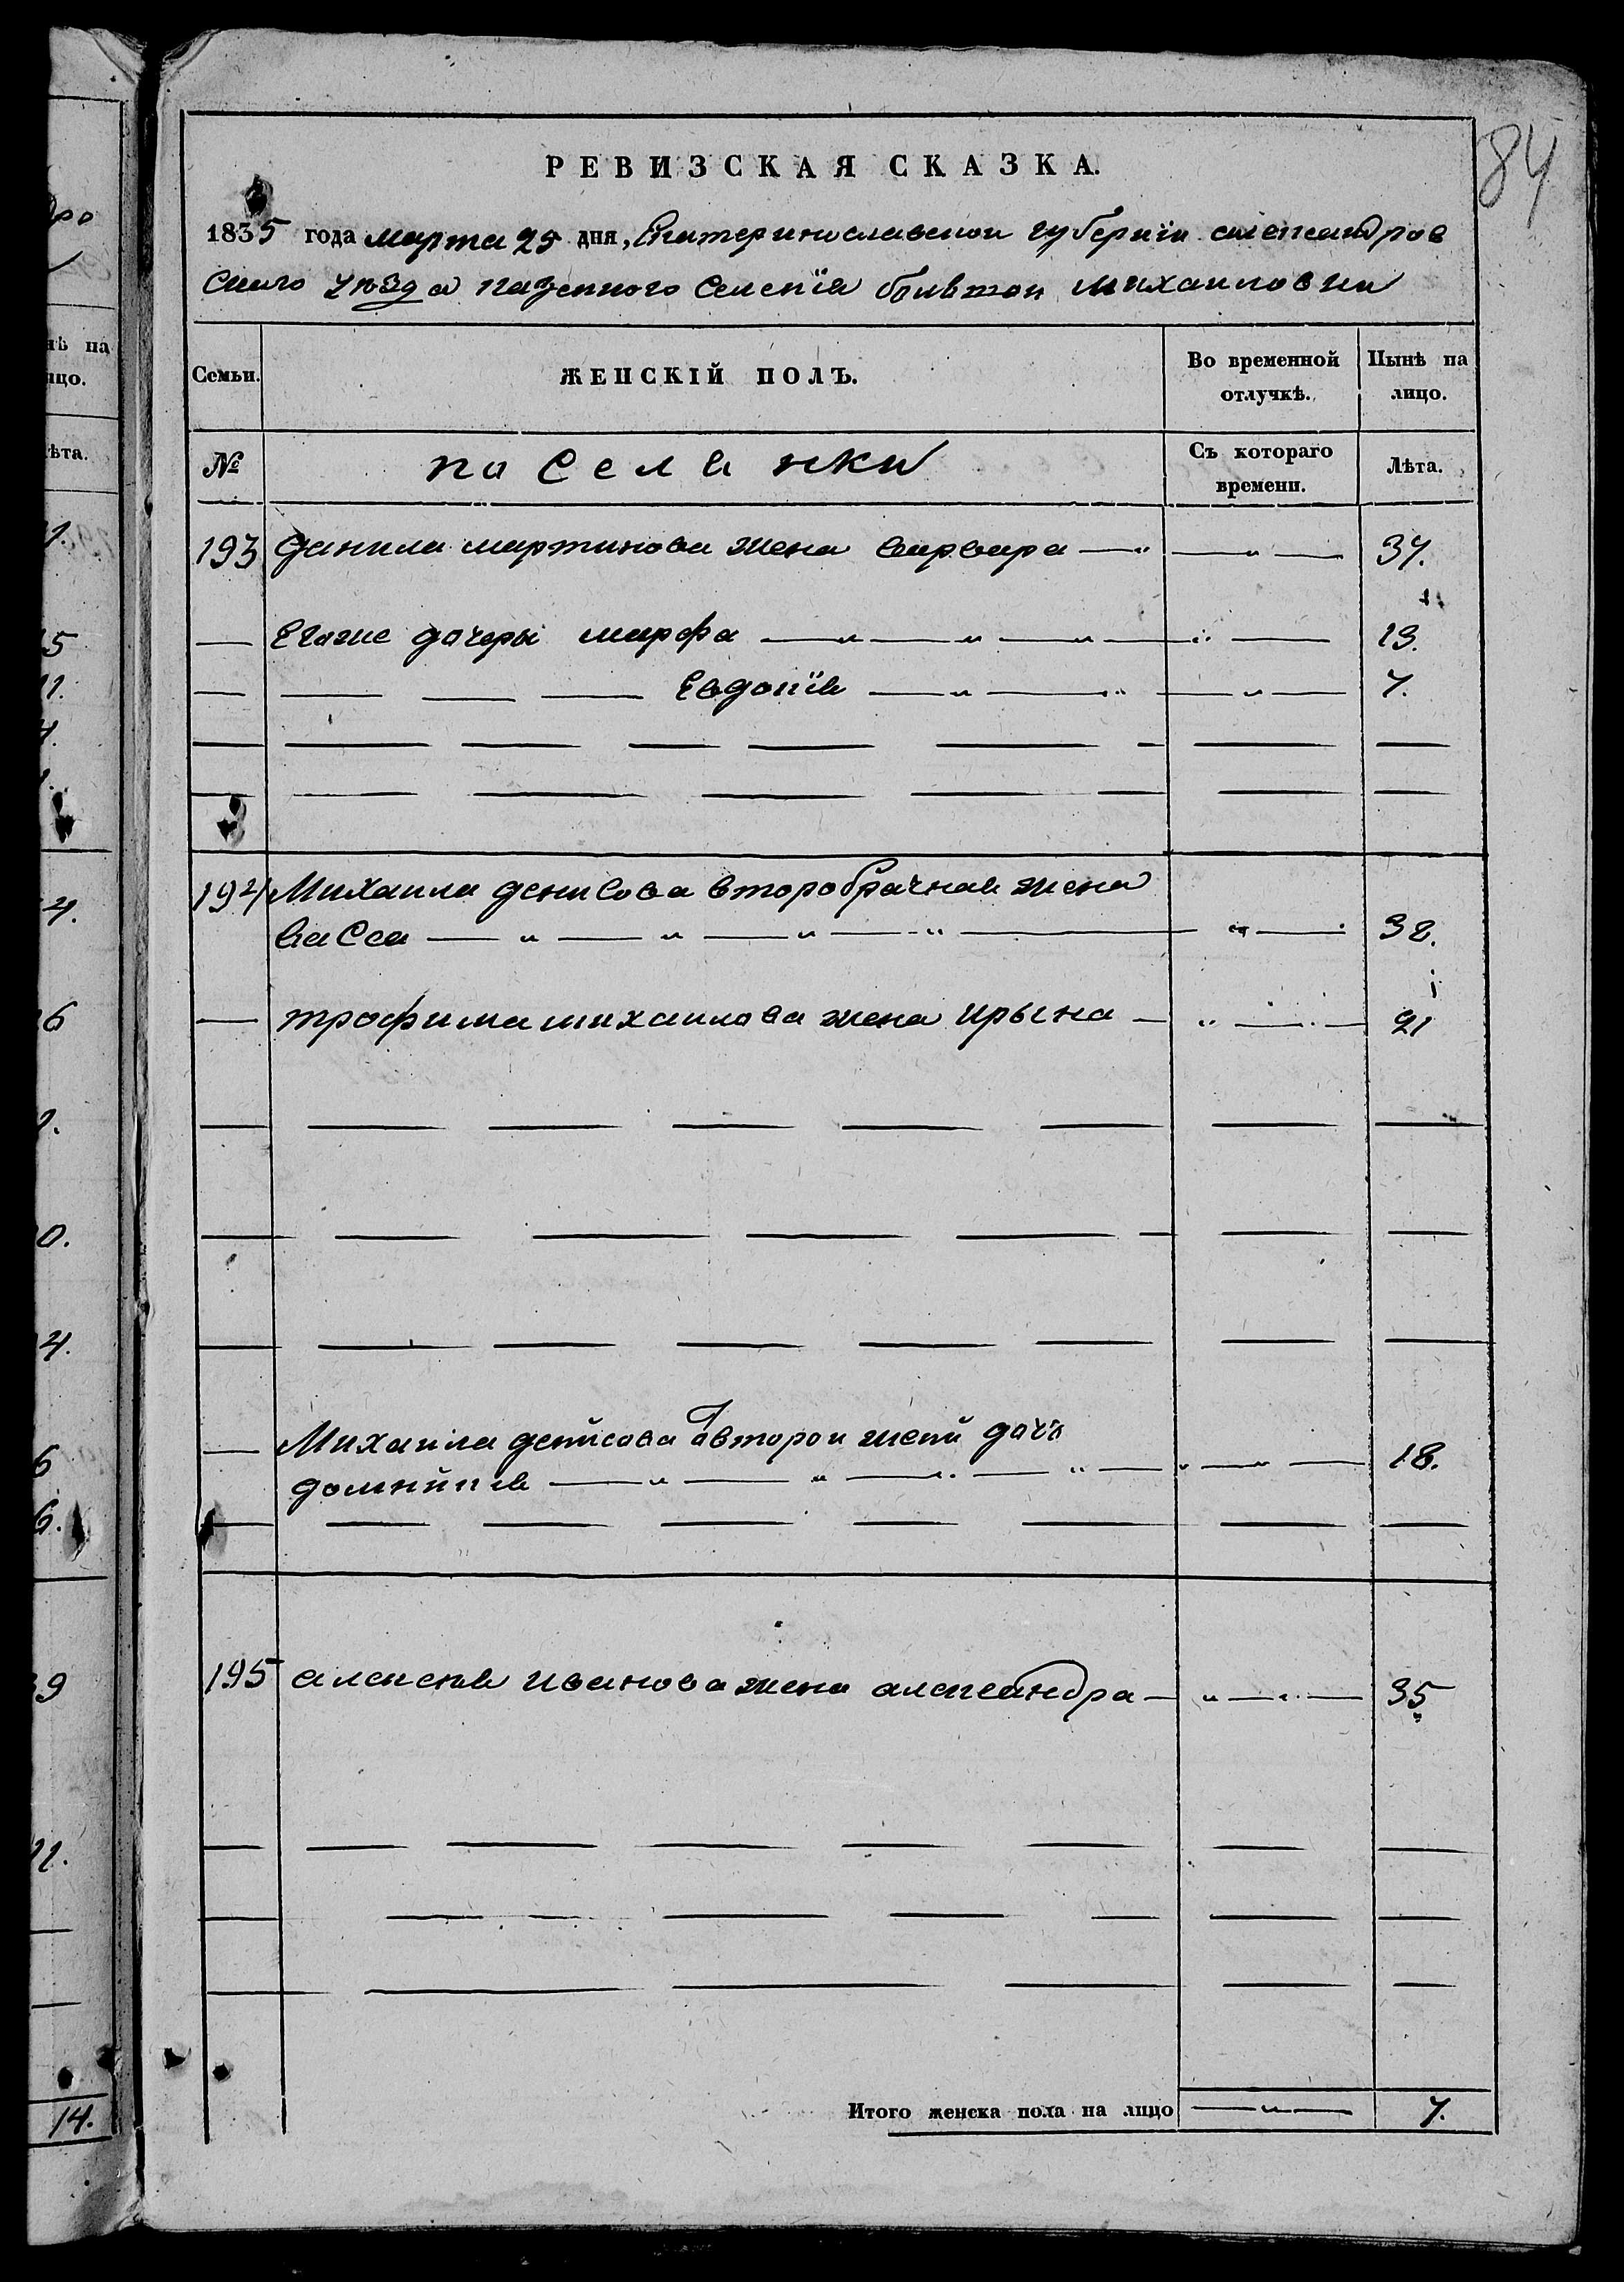 84
РЕВИЗСКАЯ СКАЗКА.
1835 года марта 25 дня, Екатеринославской губернии александров
ского уезда казенного Селенїя большой михаиловки
Семьи. ЖЕНСКІЙ ПОЛЪ. Во временной отлучкѣ. Нынѣ на лицо.
№ поселянки Съ котораго времени. Лѣта.
193 Данила мартинова жена варвара — 37.
— Егоже дочеры марфа — 13.
— Евдокїя — 7.
194 Михаила денисова второбрачная жена
васса — 38.
— трофима михаилова жена ирына — 21
— Михаила денисова второй жени дочь
домникия — 18.
195 алексея иванова жена александра — 35
Итого женска пола на лицо — 7.
ѣ на
ицо.
ѣта.
14.